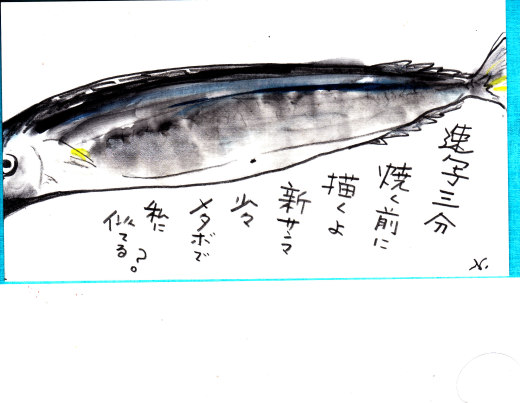 速写三分
焼く前に
描くよ
新サンマ
少々
メタボで
私に
似てる?。
N.